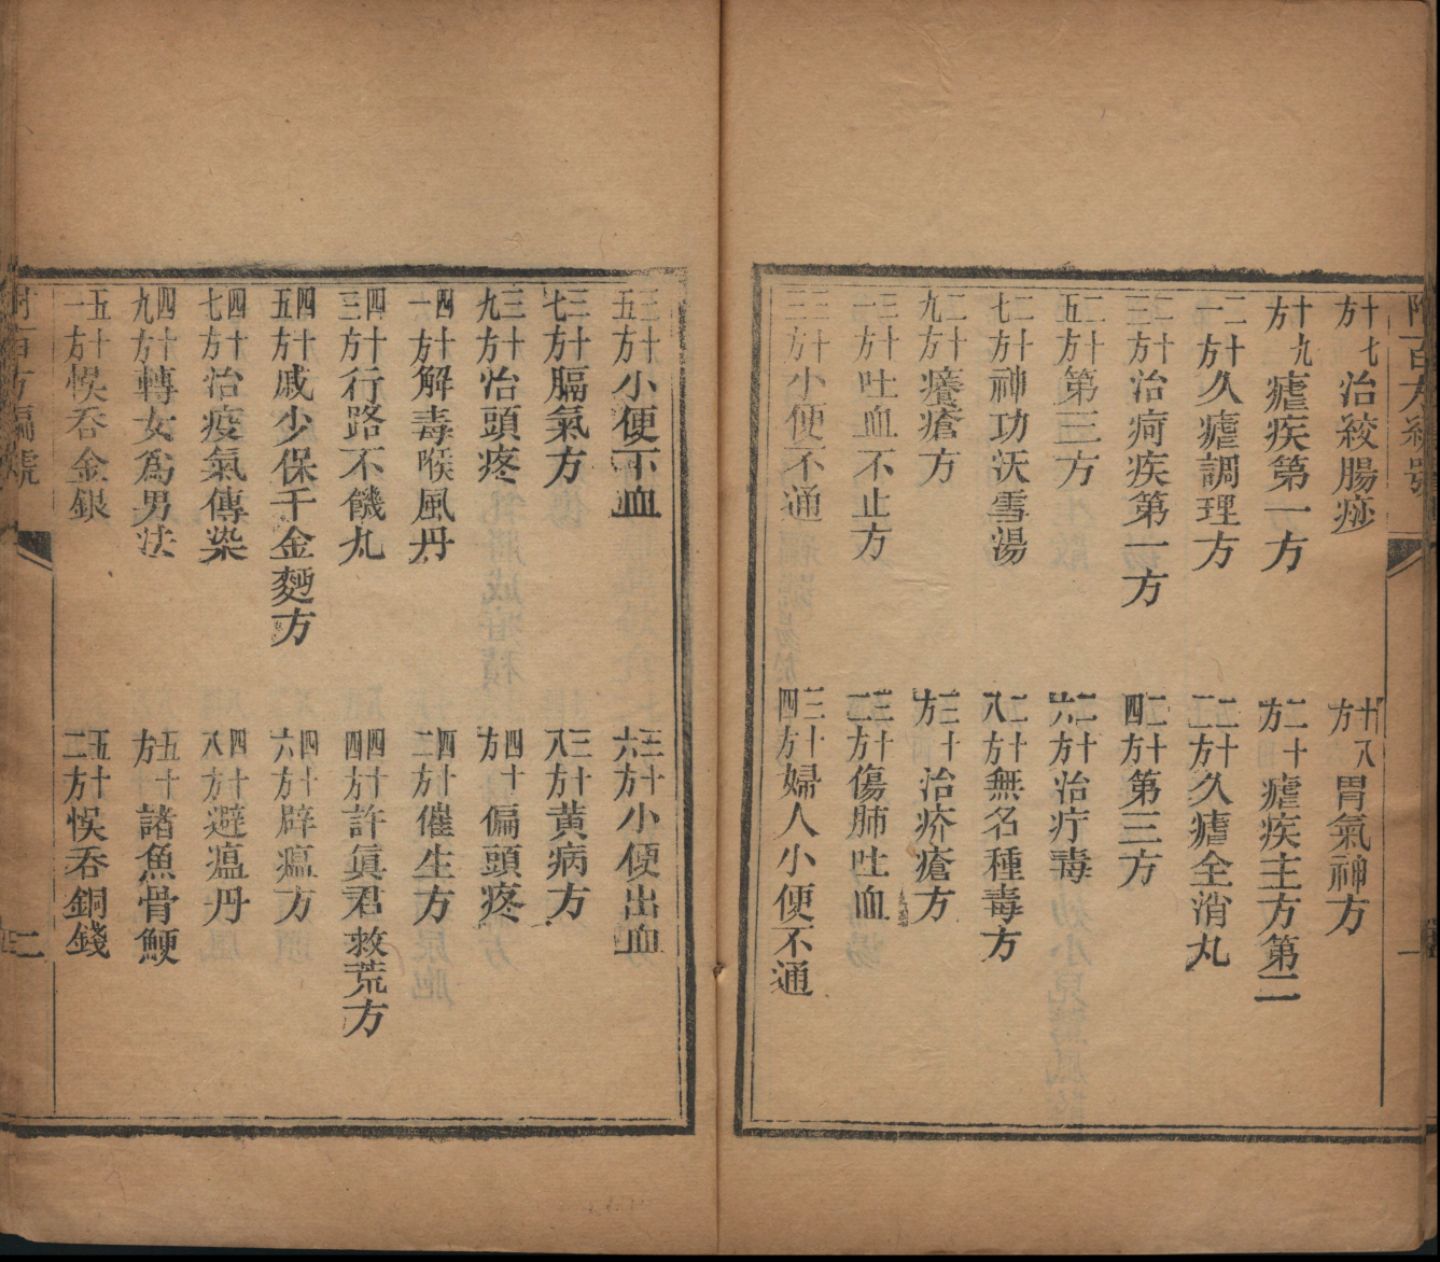 十七方治絞腸痧
十八方胃氣神方
十九方瘧疾第一方
二十方瘧疾主方第二
二十一方久瘧調理方
二十二方久瘧全消丸
二十三方治痾疾第一方
二十四方第三方
二十五方第三方
二十六方治疔毒
二十七方神功沃雪湯
二十八方無名種毒方
二十九方癢瘡方
三十方治疥瘡方
三十一方吐血不止方
三十二方傷肺吐血
三十三方小便不通
三十四方婦人小便不通
三十五方小便下血
三十六方小便出血
三十七方膈氣方
三十八方黃病方
三十九方治頭疼
四十方偏頭疼
四十一方解毒喉風丹
四十二方催生方
四十三方行路不饑丸
四十四方許眞君救荒方
四十五方戚少保千金麪方
四十六方辟瘟方
四十七方治疫氣傳染
四十八方避瘟丹
四十九方轉女爲男法
五十方諸魚骨鯁
五十一方悞吞金銀
五十二方悞吞銅錢
二